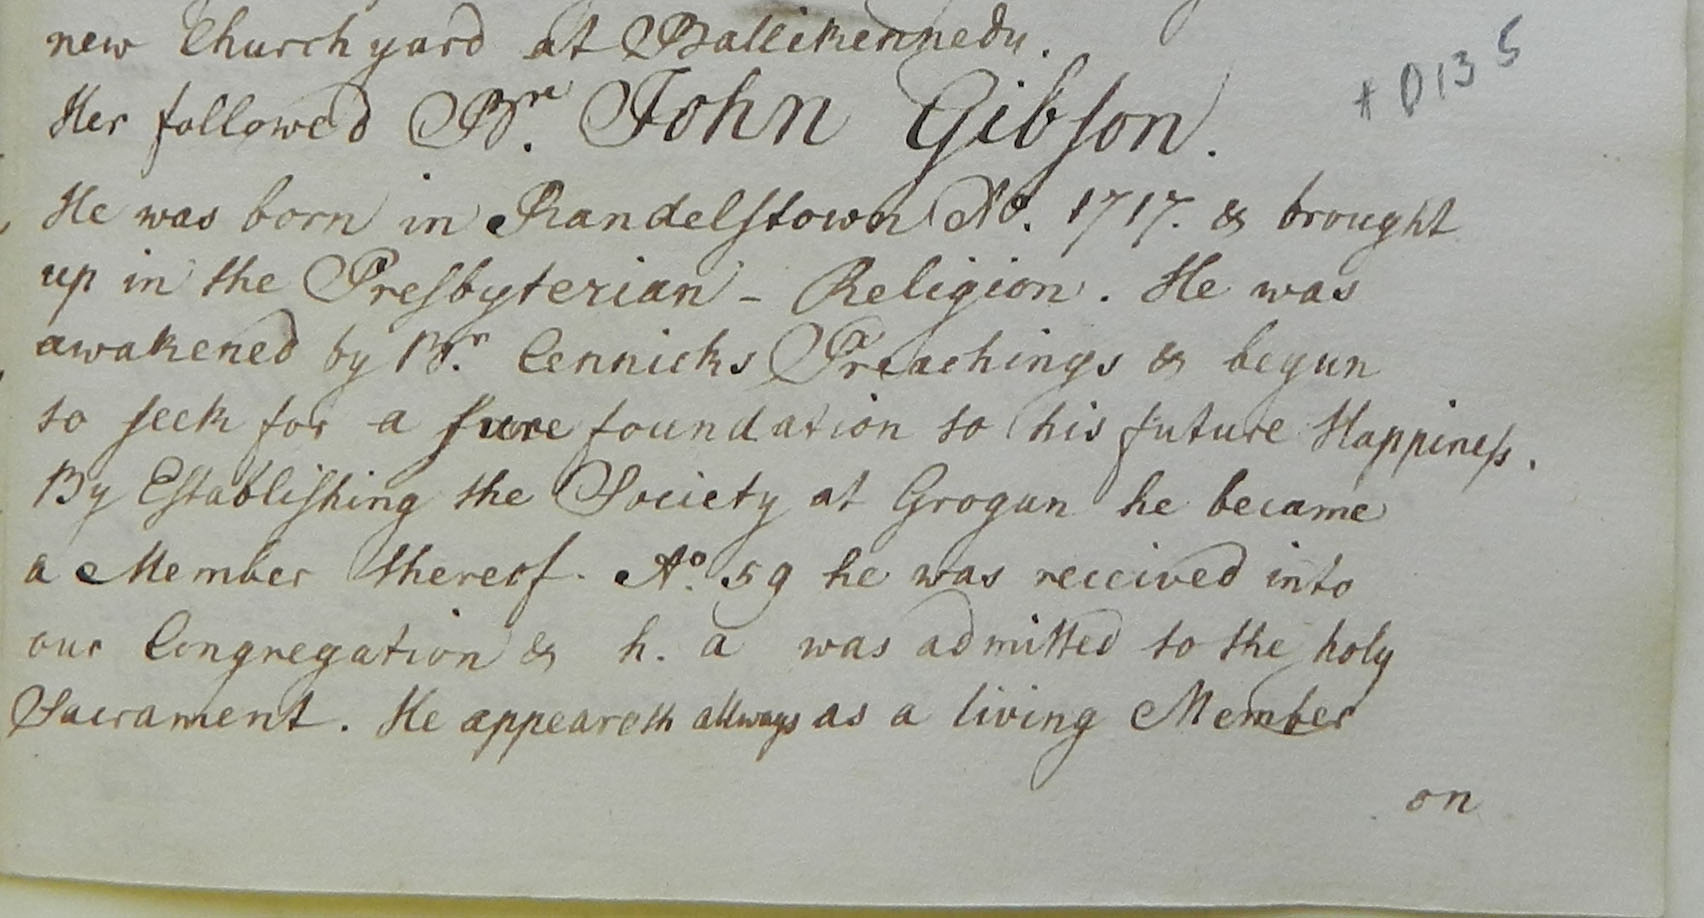 new Churchyard at Ballikennedy.
# D135
Her followed Br. John Gibson.
He was born in Randelstown Ao. 1717. & brought
up in the Presbyterian - Religion. He was
awakened by Br. Cennicks Preachings & begun
to seek for a sure foundation to his future Happiness.
By Establishing the Society at Grogan he became
a Member thereof. Ao. 59 he was received into
our Congregation & h. a was admitted to the holy
Sacrament. He appeareth allways as a living Member
on